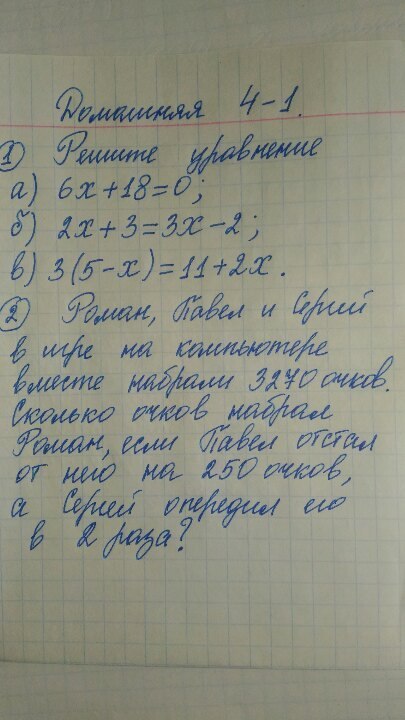 Домашняя 4-1.
① Решите уравнение
а) 6x+18=0;
б) 2x+3=3x-2;
в) 3(5-x)=11+2x.
② Роман, Павел и Сергей
в игре на компьютере
вместе набрали 3270 очков.
Сколько очков набрал
Роман, если Павел отстал
от него на 250 очков,
а Сергей опередил его
в 2 раза?